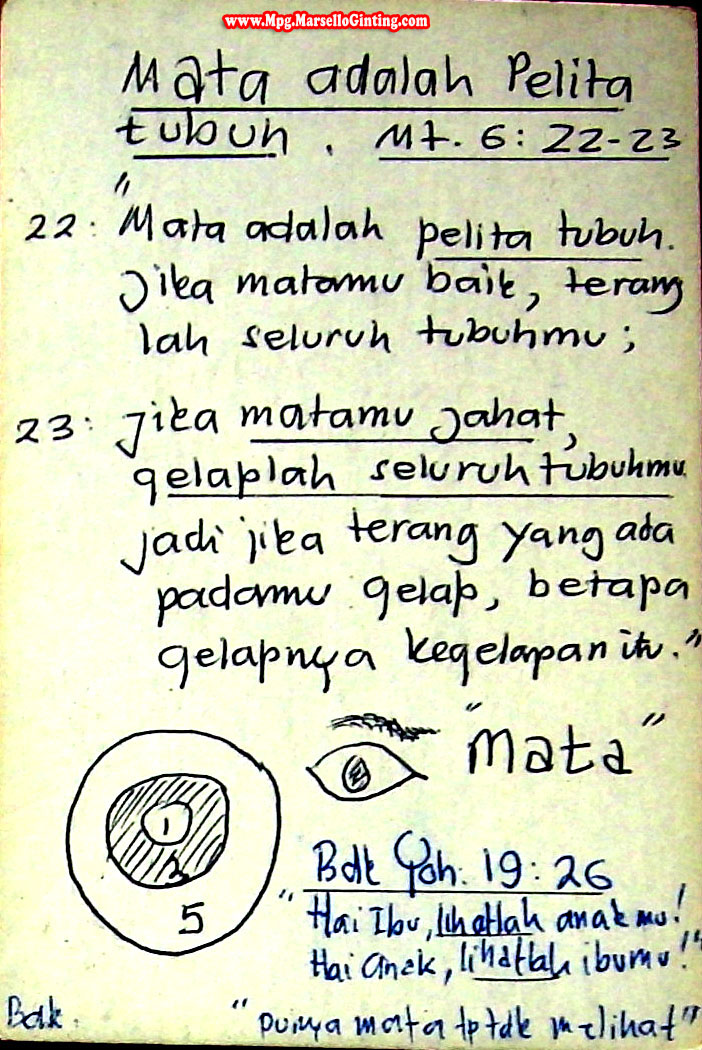 www.Mpg.MarselloGinting.com
Mata adalah Pelita
tubuh. Mt. 6: 22-23
22: "Mata adalah pelita tubuh.
Jika matamu baik, terang
lah seluruh tubuhmu;
23: Jika matamu jahat,
gelaplah seluruh tubuhmu.
jadi jika terang yang ada
padamu gelap, betapa
gelapnya kegelapan itu."
"Mata"
1
3
5
Bdk Yoh. 19: 26
"Hai Ibu, lihatlah anakmu!
Hai anak, lihatlah ibumu!"
Bdk. "punya mata tp tdk melihat"